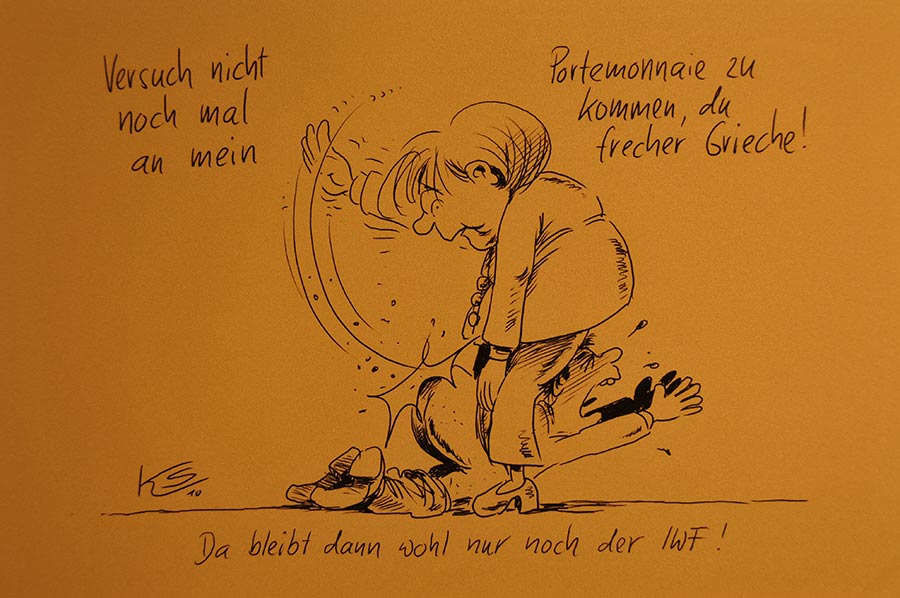 Versuch nicht
noch mal
an mein
Portemonnaie zu
kommen, du
frecher Grieche!
KS 10
Da bleibt dann wohl nur noch der IWF!